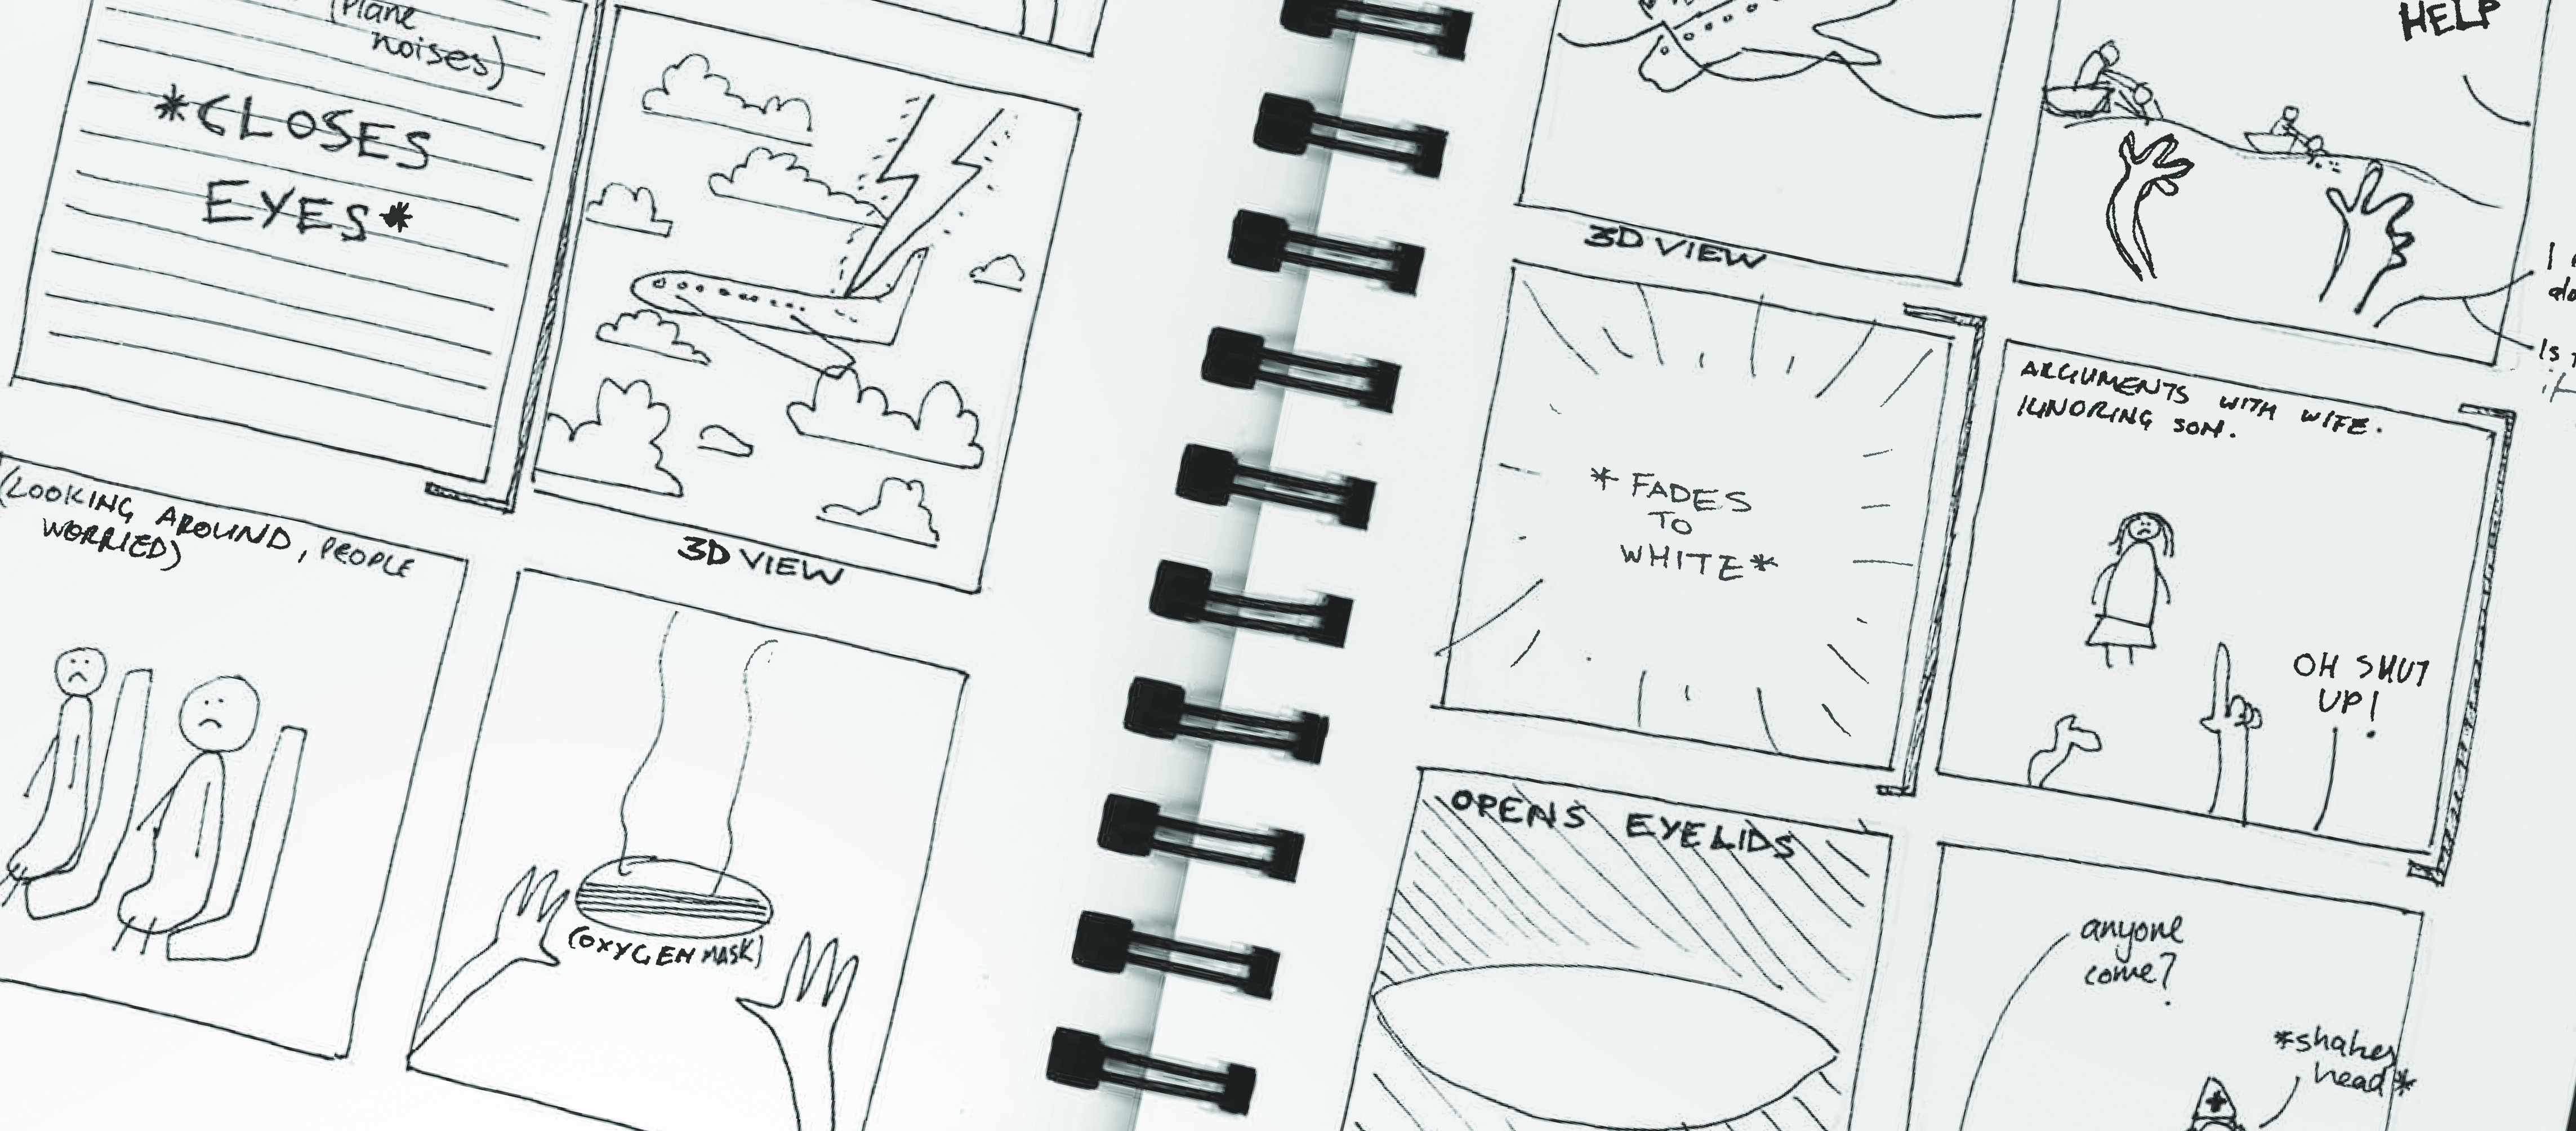 (Plane
noises)
*CLOSES
EYES*
3D VIEW
(LOOKING AROUND, PEOPLE
WORRIED)
(OXYGEN MASK)
HELP
3D VIEW
* FADES
TO
WHITE*
ARGUMENTS WITH WIFE.
IGNORING SON.
OH SHUT
UP!
OPENS EYELIDS
anyone
come?
*shakes
head*
I
Is